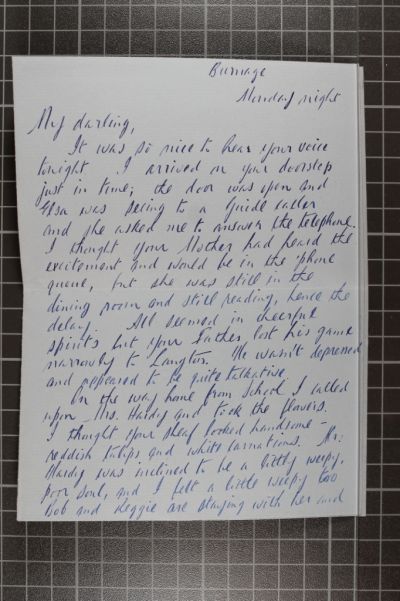 Burnage
Monday night
My darling,
It was so nice to hear your voice
tonight. I arrived on your doorstep
just in time; the door was open and
Elsa was seeing to a Guide caller
and she asked me to answer the telephone.
I thought your Mother had heard the
excitement and would be in the 'phone
queue, but she was still in the
dining room and still reading, hence the
delay. All seemed in cheerful
spirits but your Father lost his game
narrowly to Langton. He wasn't depressed
and appeared to be quite talkative.
On the way home from School I called
upon Mrs. Hardy and took the flowers.
I thought your sheaf looked handsome -
reddish tulips and white carnations. Mr.
Hardy was inclined to be a little weepy,
poor soul, and I felt a little weepy too
Bob and Reggie are staying with her and